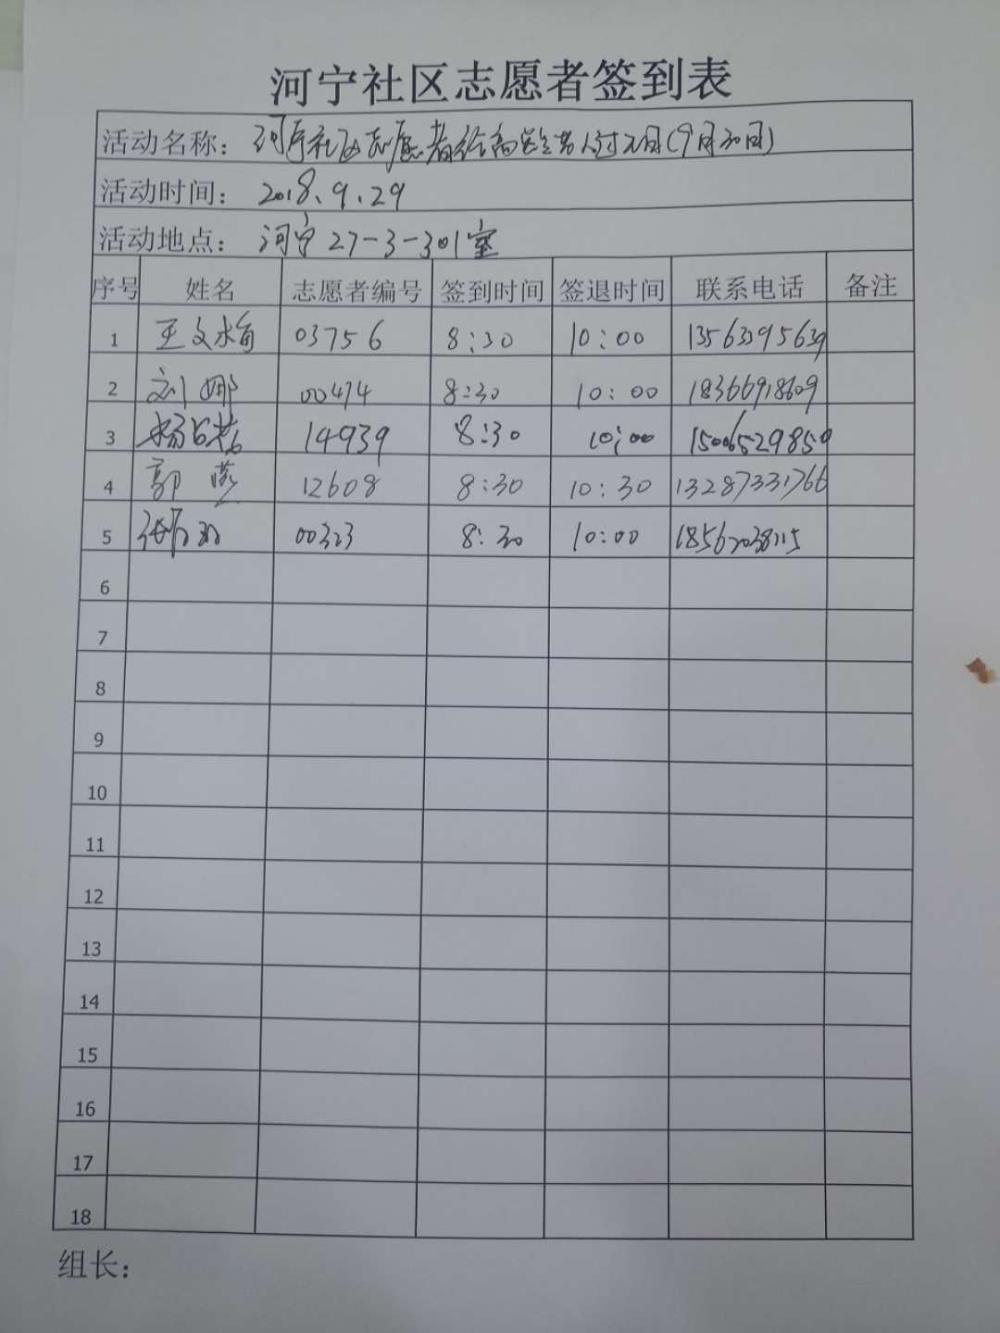 河宁社区志愿者签到表
活动名称：河宁社区志愿者给高学兰老人过生日(9月30日)
活动时间：2018.9.29
活动地点：河宁27-3-301室
序号 姓名 志愿者编号 签到时间 签退时间 联系电话 备注
1 王文 03756 8:30 10:00 13563395639
2 刘娜 00474 8:30 10:00 18366918609
3 杨 14939 8:30 10:00 15006529859
4 郭燕 12608 8:30 10:30 13287331766
5 张 00323 8:30 10:00
6
7
8
9
10
11
12
13
14
15
16
17
18
组长：